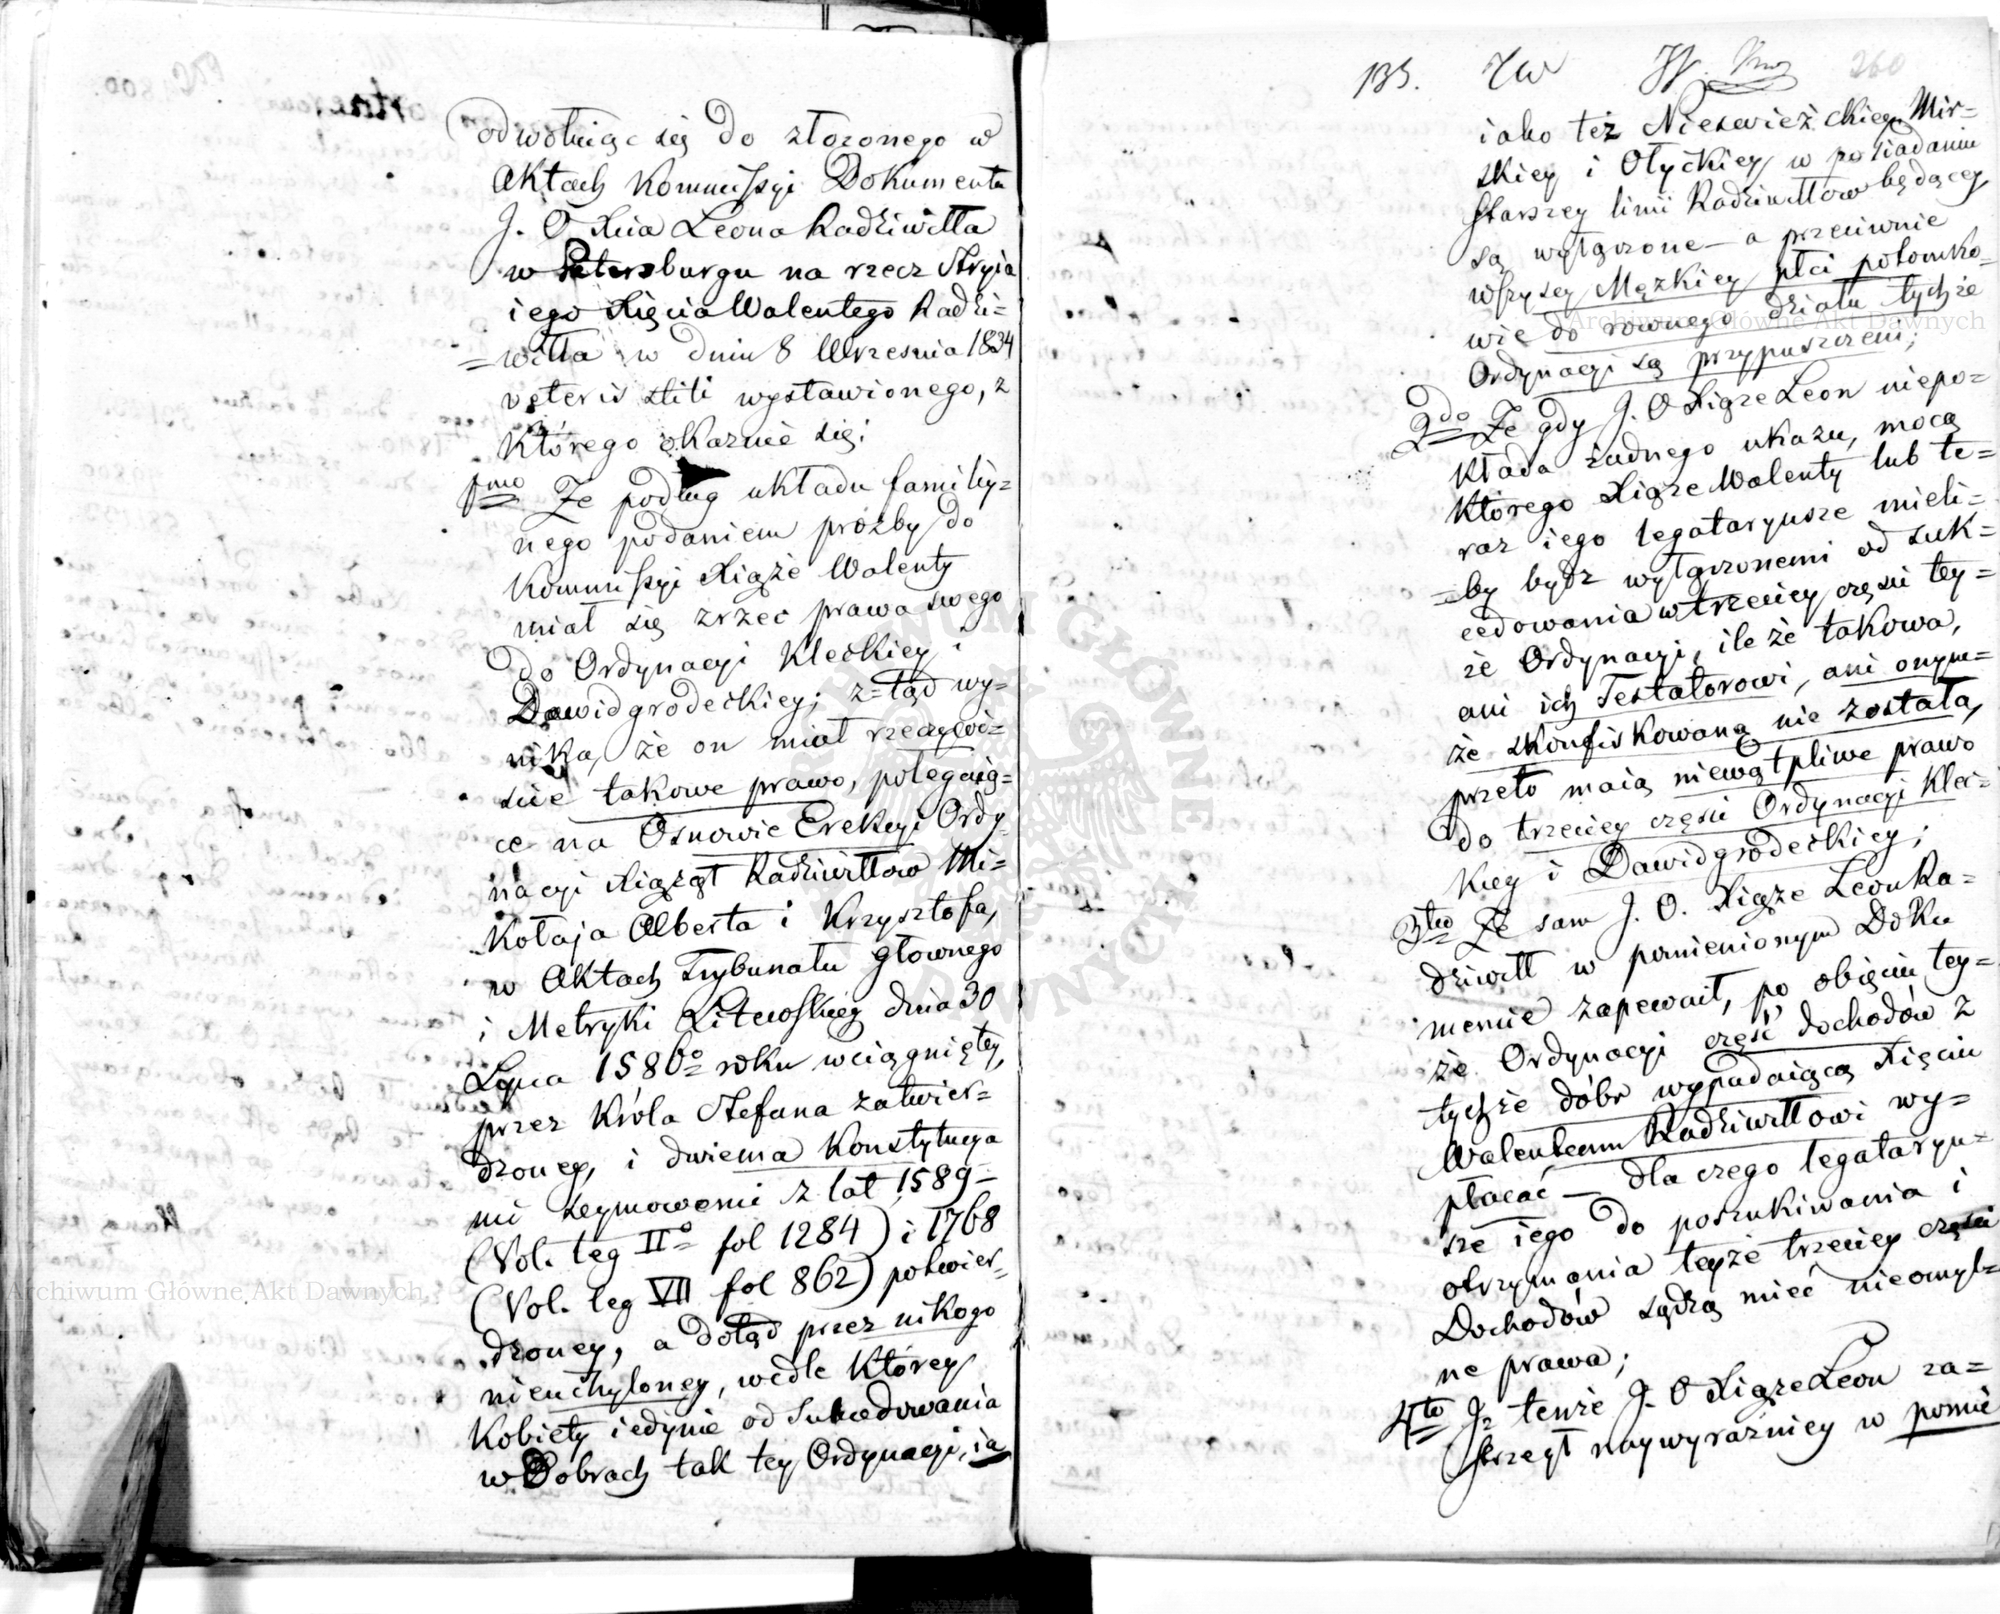 odwołując się do złożonego w
Aktach Kommissyi Dokumentu
J. O. Xcia Leona Radziwiłła
w Petersburgu na rzecz Stryia
iego Xięcia Walentego Radzi=
=wiłła w dniu 8 Września 1834
veteris stili wystawionego, z
którego okazuie się:
1mo Że podług układu familiy=
nego podaniem prozby do
Kommissyi Xiąże Walenty
miał się zrzec prawa swego
do Ordynacyi Kleckiey i
Dawidgrodeckiey; z=tąd wy=
nika, że on miał rzeczywi=
ście takowe prawo, polegaią=
ce na Osnowie Erekcyi Ordy
nacyi Xiążąt Radziwiłłow Mi=
kołaja Alberta i Krzysztofa,
w Aktach Trybunału Głownego
i Metryki Litewskiey dnia 30
Lipca 1586o roku wciągniętey,
przez Króla Stefana zatwier=
dzoney, i dwiema Konstytucya
mi seymowemi z lat 1589 -
(Vol. leg IIo fol 1284) i 1768
(Vol. leg VII fol 862) potwier=
dzoney, a dotąd przez nikogo
nieuchyloney, wedle którey
Kobiety iedynie od Sukcedowania
w Dobrach tak tey Ordynacyi, ia
135. 260
iako też Nieświeżckiey, Mir=
skiey i Ołyckiey w posiadaniu
starszey linii Radziwiłłow będącey
są wyłączone - a przeciwnie
wszyscy Męzkiey płci potomko=
wie do rownego działu tychże
Ordynacyi są przypuszczeni;
2do Że gdy J. O Xiąże Leon niepo=
kłada żadnego ukazu, mocą
którego Xiąże Walenty lub te=
raz iego legataryusze mieli=
=by bydz wyłączonemi od suk=
cedowania w trzeciey części tey=
że Ordynacyi, ile że takowa,
ani ich Testatorowi, ani onym=
że skonfiskowaną nie została,
przeto maią niewątpliwe prawo
do trzeciey części Ordynacyi Klec=
kiey i Dawidgrodeckiey;
3tio Że sam J. O. Xiąże Leon Ra=
dziwiłł w pomienionym Doku
mencie zapewnił, po obięciu tey=
że Ordynacyi część dochodów z
tychże dóbr wypadaiącą Xięciu
Walentemu Radziwiłłowi wy=
płacać - dla czego legataryu=
sze iego do poszukiwania i
otrzymania teyże trzeciey części
Dochodów sądzą mieć nieomyl=
ne prawa;
4to Iż tenże J. O Xiąże Leon za=
strzegł naywyraźniey w pomie
Archiwum Główne Akt Dawnych
Archiwum Główne Akt Dawnych
ARCHIWUM GŁÓWNE AKT DAWNYCH